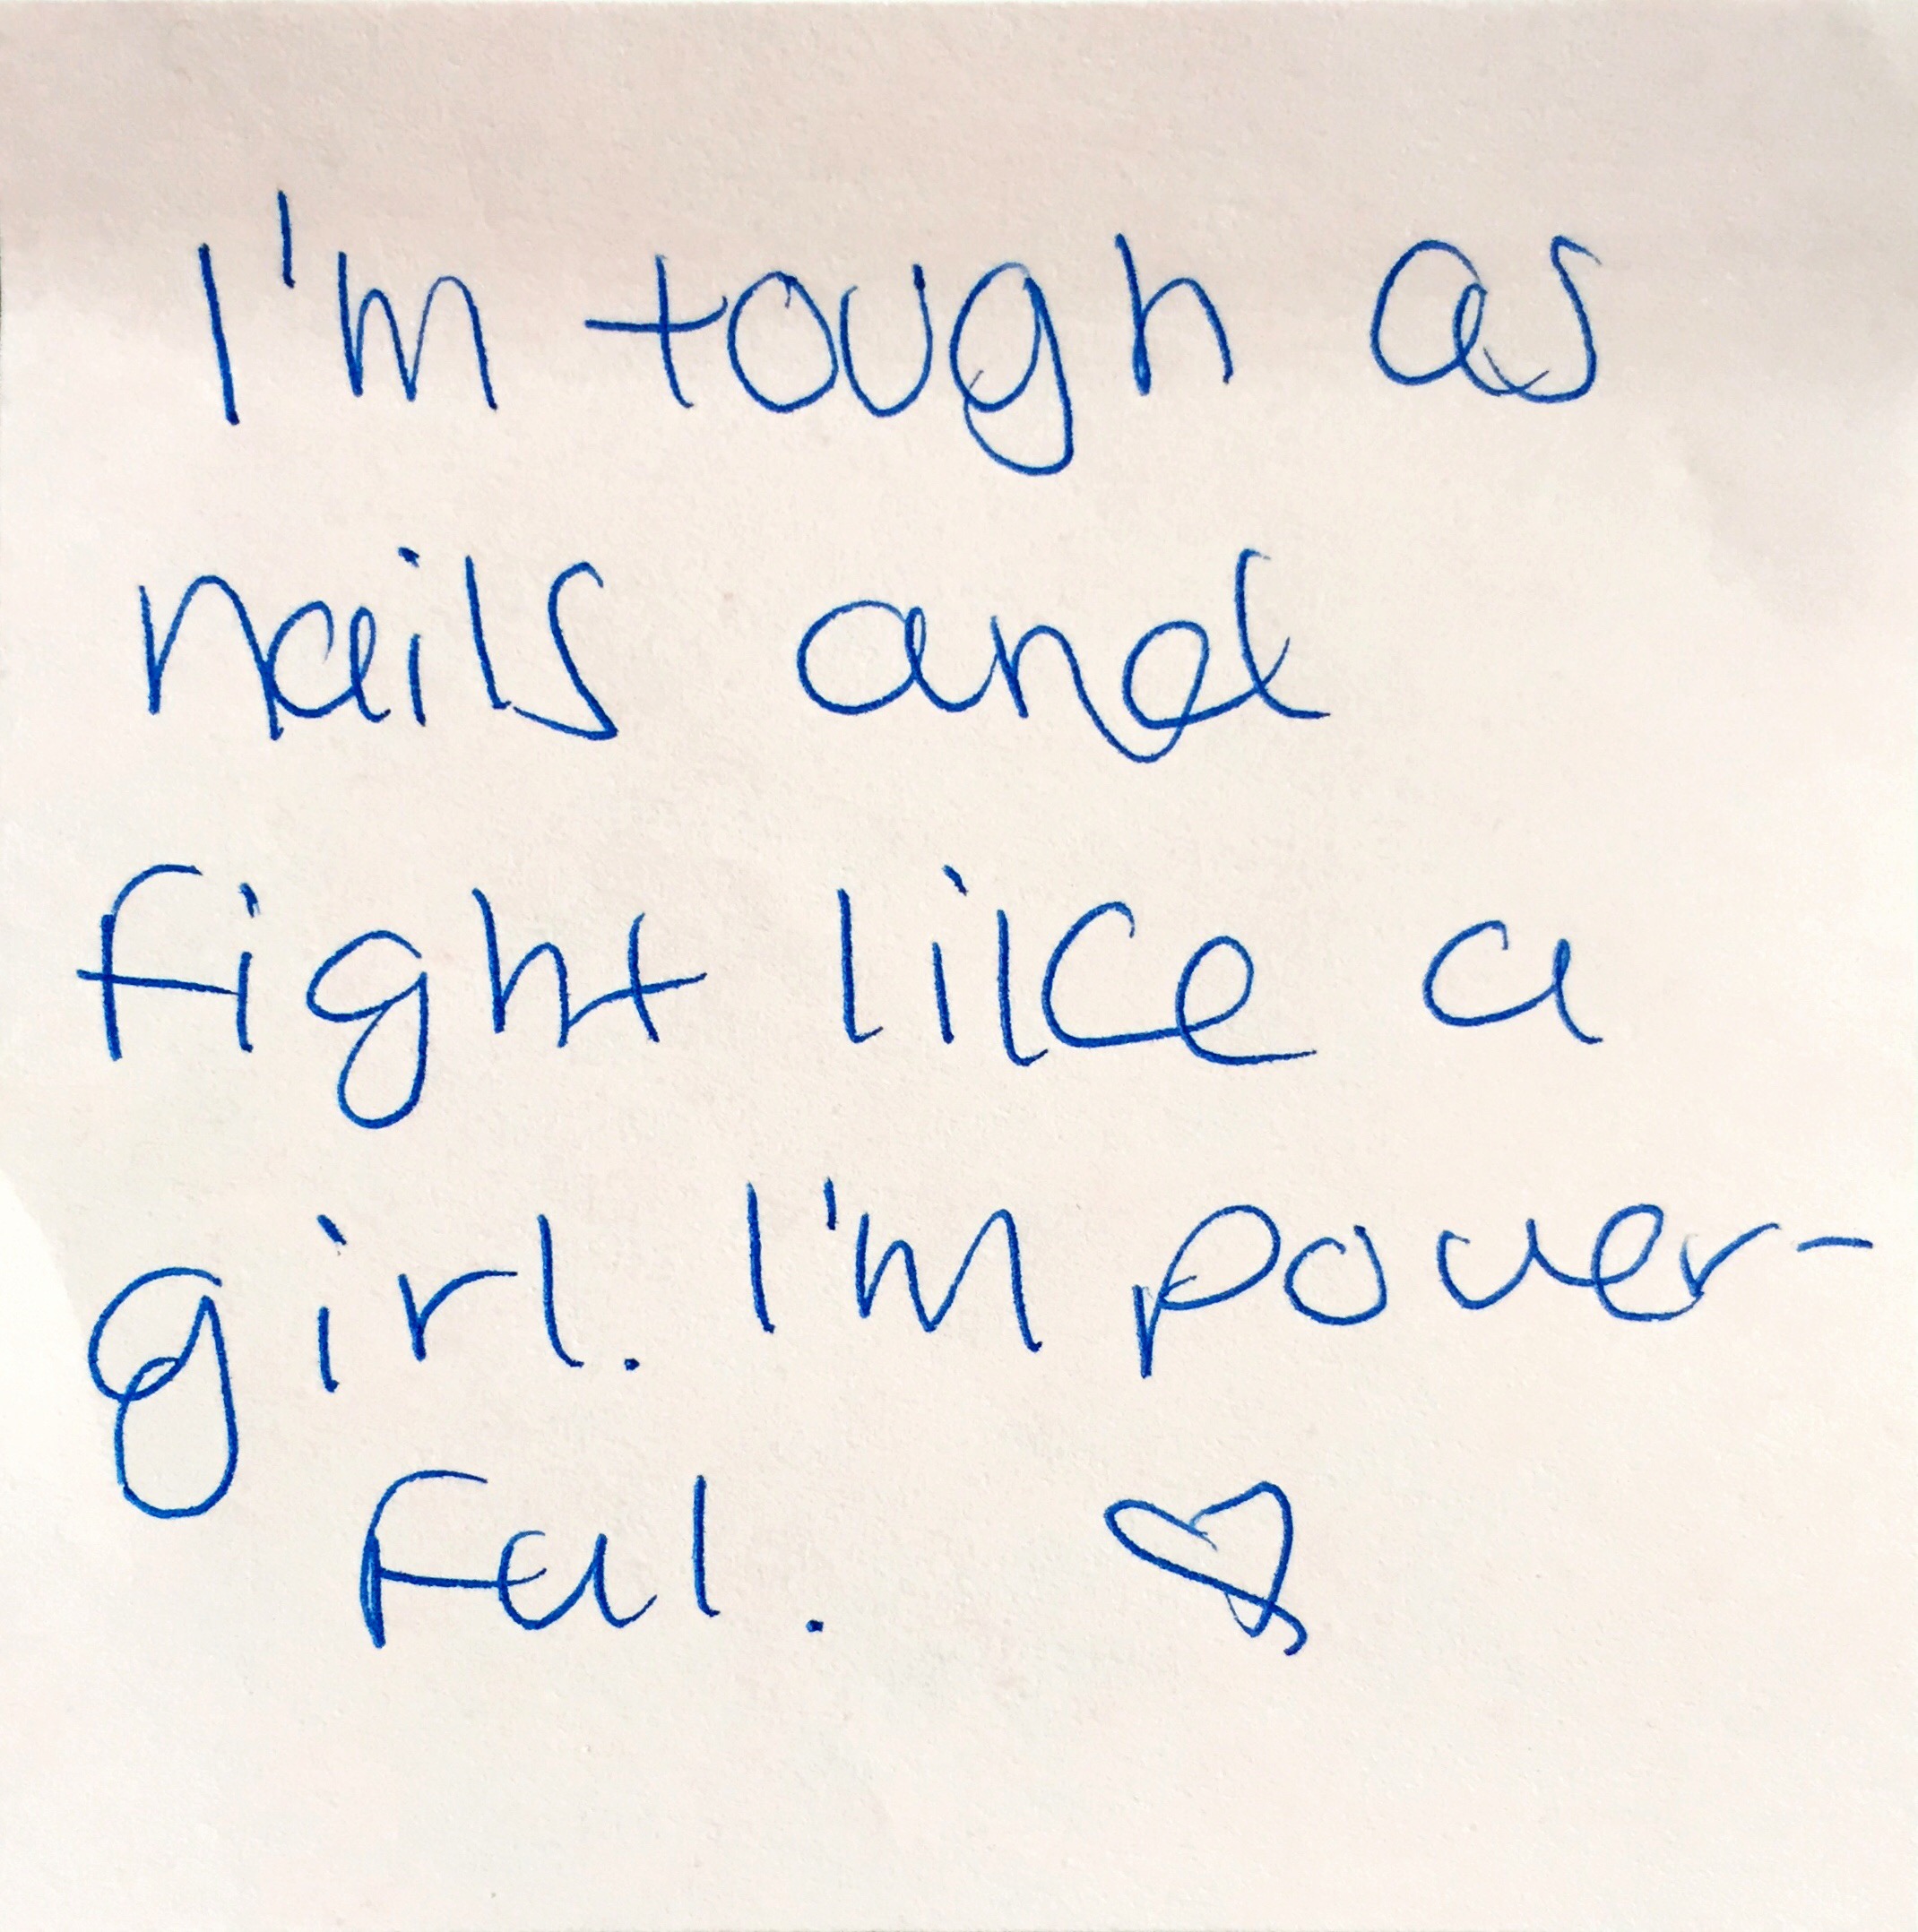 I'm tough as
nails and
fight like a
girl. I'm power-
ful. ♡